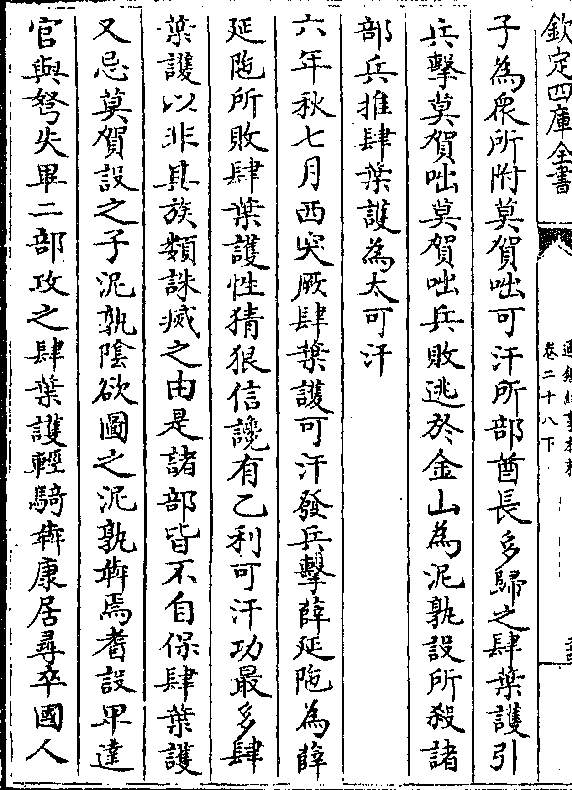 欽定四庫全書
卷二十八下
子為衆所附莫賀咄可汗所部酋長多歸之肆葉護引
兵擊莫賀咄莫賀咄兵敗逃於金山為泥孰設所殺諸
部兵推肆葉護為大可汗
六年秋七月西突厥肆葉護可汗發兵擊薛延陁為薛
延陁所敗肆葉護性猜狠信讒有乙利可汗功最多肆
葉護以非其族類誅滅之由是諸部皆不自保肆葉護
又忌莫賀設之子泥孰陰欲圖之泥孰犇焉耆設卑達
官與弩失畢二部攻之肆葉護輕騎犇康居尋卒國人